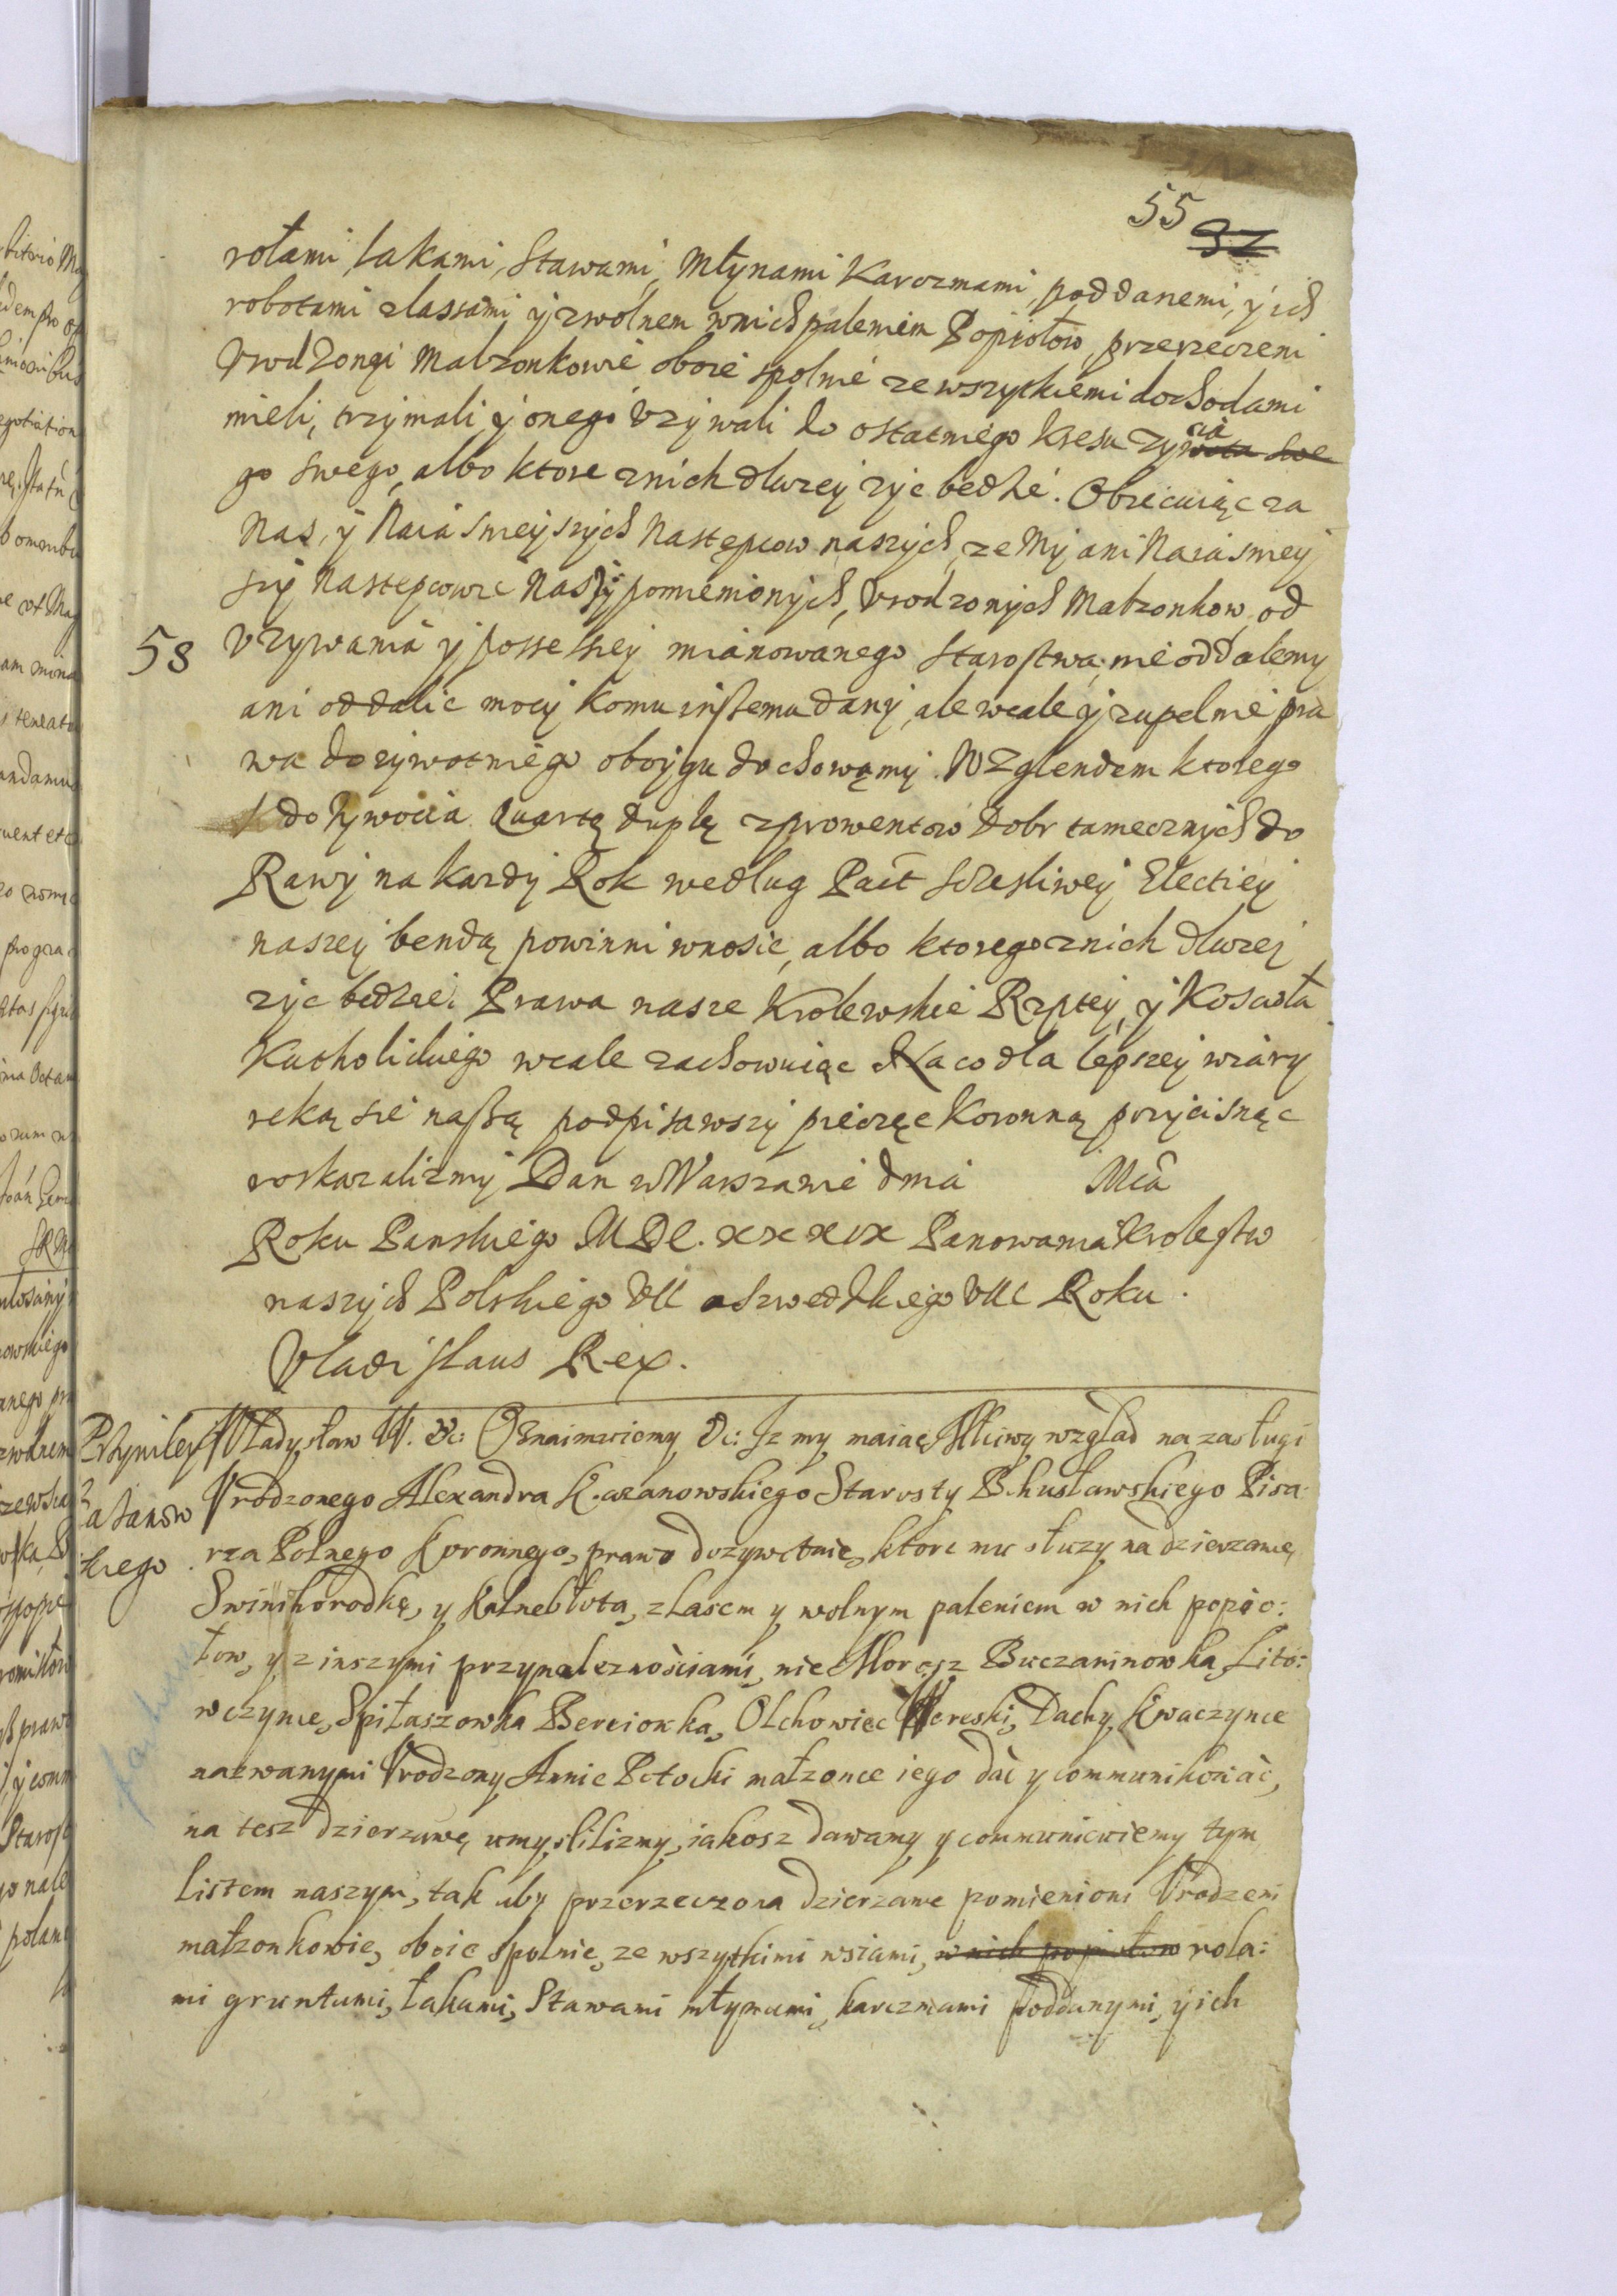 55 32
rołami łakami, Stawami, Młynami Karczmami, poddanemi, y ich
robotami z lassami, y zwolnem wnich paleniem Popiołow, przerzeczeni
Vrodzongi Małzonkowie oboie spolnie ze wszytkiemi dochodami
mieli, trzymali, y onego Vzywali do ostatniego kresu zycia wota swe
go swego, albo ktore znich dłuzey zyc bedzie. Obiecuiąc za
Nas, y Naiasnieyszych Nastepcow naszych, ze My ani Naiasniey
szy Nastepcowie Naszy pomienionych, Vrodzonych Małzonkow, od
58 Vzywania y possessiey mianowanego Starostwa, nie oddalemy
ani oddalic mocy komu inszemu damy, ale wcale y zupelnie pra
wa dozywotniego oboygu dochowamy. Wzglendem ktorego
dozywocia Quartę duplę z prowentow dobr tamecznych do
Rawy na kazdy Rok według Pact sczesliwey Electiey
naszey bendą powinni wnosic, albo ktorego znich dłuzey
zyc bedzie. Prawa nasze Krolewskie Rzptey, y Koscioła
Katholickiego wcale zachowuiąc Na co dla lepszey wiary
ręką sie naszą podpisawszy pieczęc Koronną przycisnąc
roskazalizmy Dan w Warszawie dnia Mca
Roku Panskiego MDC.XXXIX Panowania Krolestw
naszych Polskiego VII a Szwedzkiego VIII Roku.
Vladislaus Rex.
Przywiley Kazanow skiego.
Władysław IV. &c: Oznaimuiemy &c: Iz my maiąc Mściwy wzgląd na zasługi
Vrodzonego Alexandra Kazanowskiego Starosty Bohusławskiego Pisa:
rza Polnego Koronnego, prawo dozywotnie, ktore mu słuzy na dzierzawię
Swinihorodkę, y Kalnebłota, z lasem y wolnym paleniem w nich popio:
łow, y z inszymi przynaleznościami, nie Morosz Buczaninowka, Lito:
wczynie, Spitaszowka Berciowka, Olchowiec Wereski, Dachy Kwaczynce
nazwanymi Vrodzony Annie Potocki małzonce iego dać y communikowac,
na tesz dzierzawę umyslilizmy, iakosz dawamy y communicuiemy tym
Listem naszym, tak aby przerzeczona dzierzawe pomienioni Vrodzeni
małzonkowie, oboie spolnie, ze wszytkimi wsiami, w nich popiołow rola:
mi gruntami, łakami, Stawami młynami, karczmami poddanymi, y ich